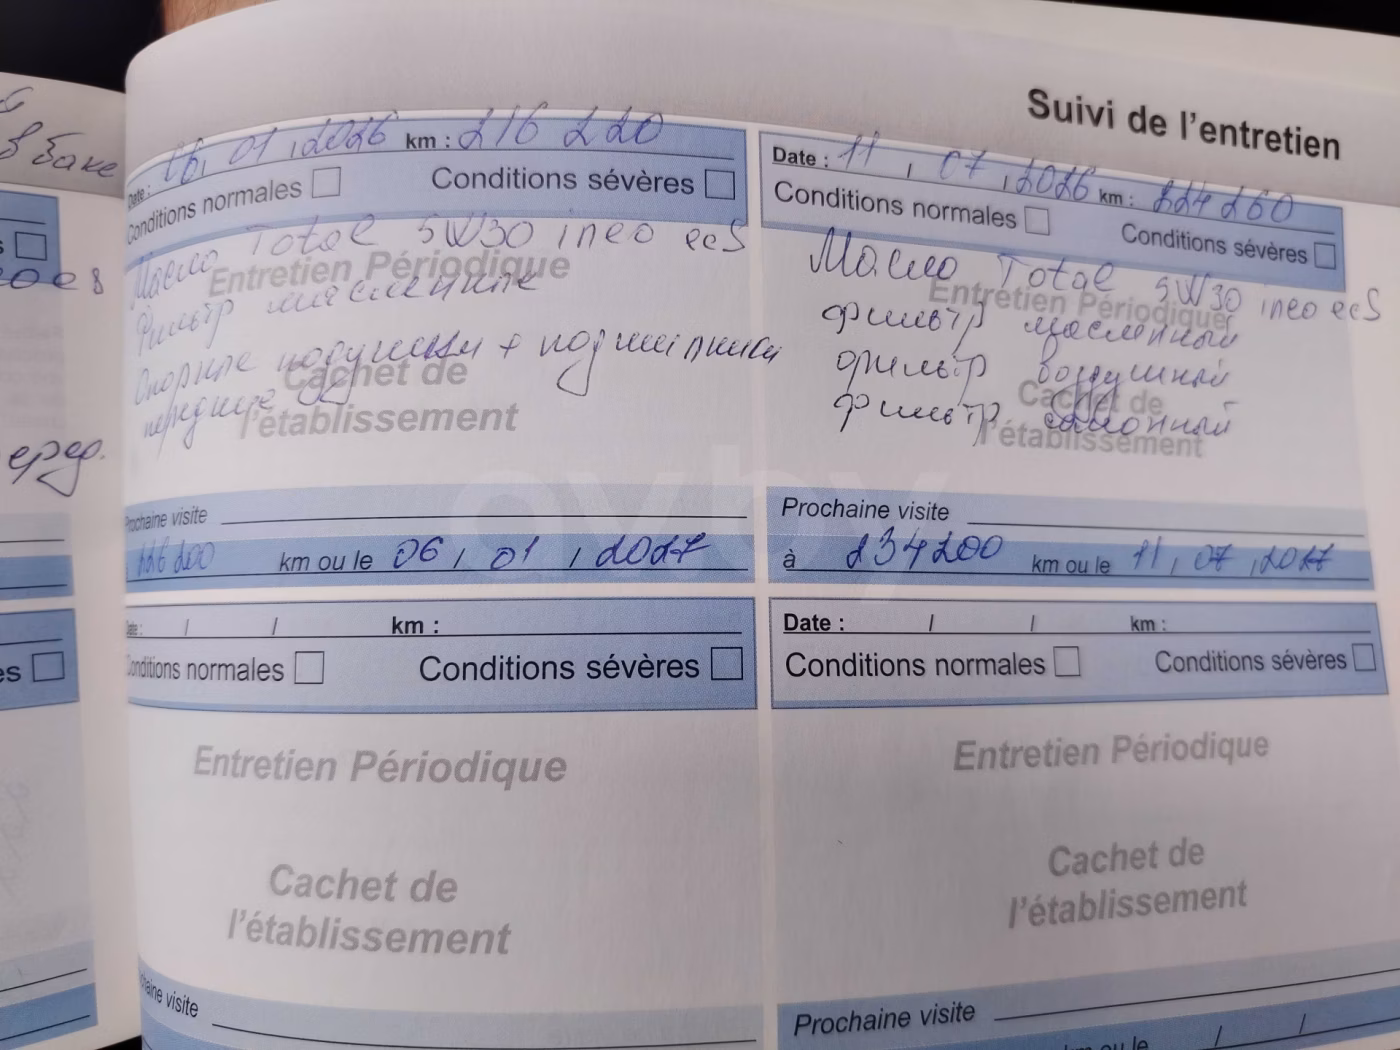 в баке
оев
еред.
Suivi de l'entretien
Date : 06, 01, 2026 km : 216 220
Conditions normales Conditions sévères
Масло Total 5W30 ineo ecS
Entretien Périodique
Фильтр масленный
Опорные подушки + подшипники
Cachet de
передние
l'établissement
Prochaine visite
226 200 km ou le 06, 01, 2027
Date : 11, 07, 2026 km : 224 260
Conditions normales Conditions sévères
Масло Total 5W30 ineo ecS
Entretien Périodique
фильтр масленный
фильтр воздушный
Cachet de
фильтр салонный
l'établissement
Prochaine visite
à 234200 km ou le 11, 07, 2027
Date : / / km :
Conditions normales Conditions sévères
Entretien Périodique
Cachet de
l'établissement
Prochaine visite
Date : / / km :
Conditions normales Conditions sévères
Entretien Périodique
Cachet de
l'établissement
Prochaine visite
km ou le / /
av.by